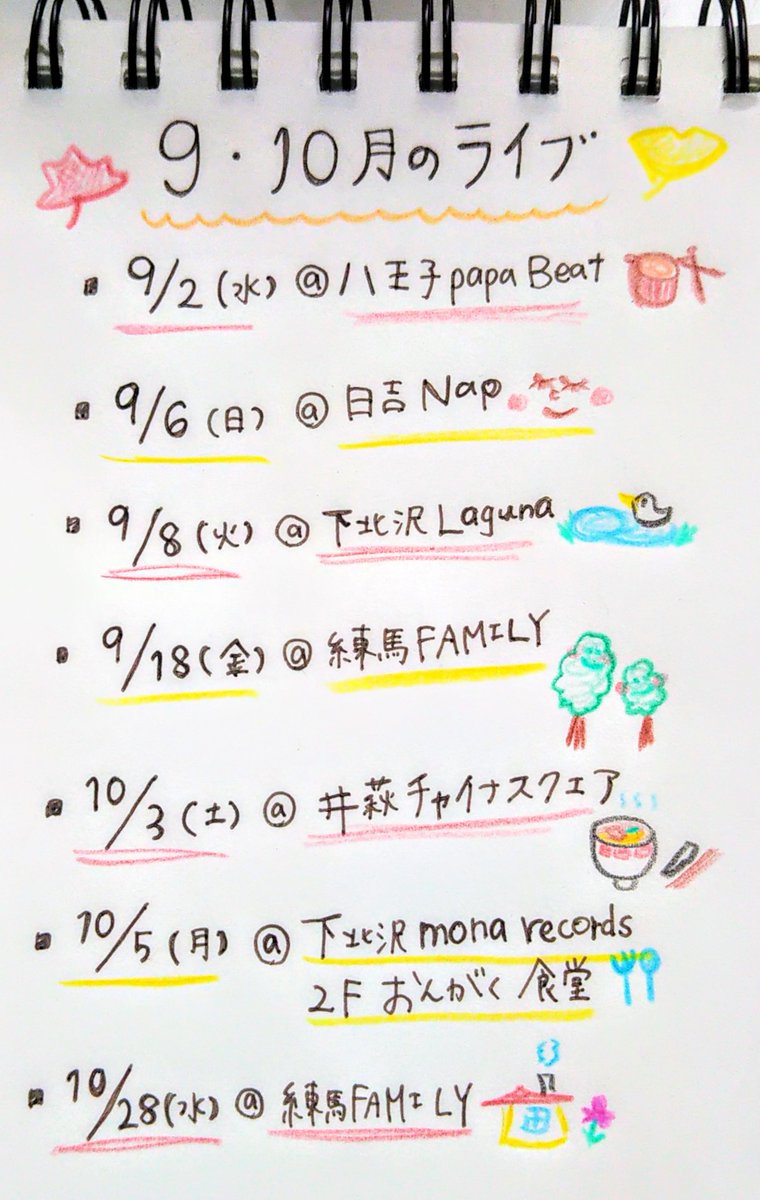 9・10月のライブ
9/2(水) @八王子papa Beat
9/6(日) @日吉Nap
9/8(火) @下北沢Laguna
9/18(金) @練馬FAMILY
10/3(土) @井萩チャイナスクエア
10/5(月) @下北沢mona records
2F おんがく食堂
10/28(水) @練馬FAMILY